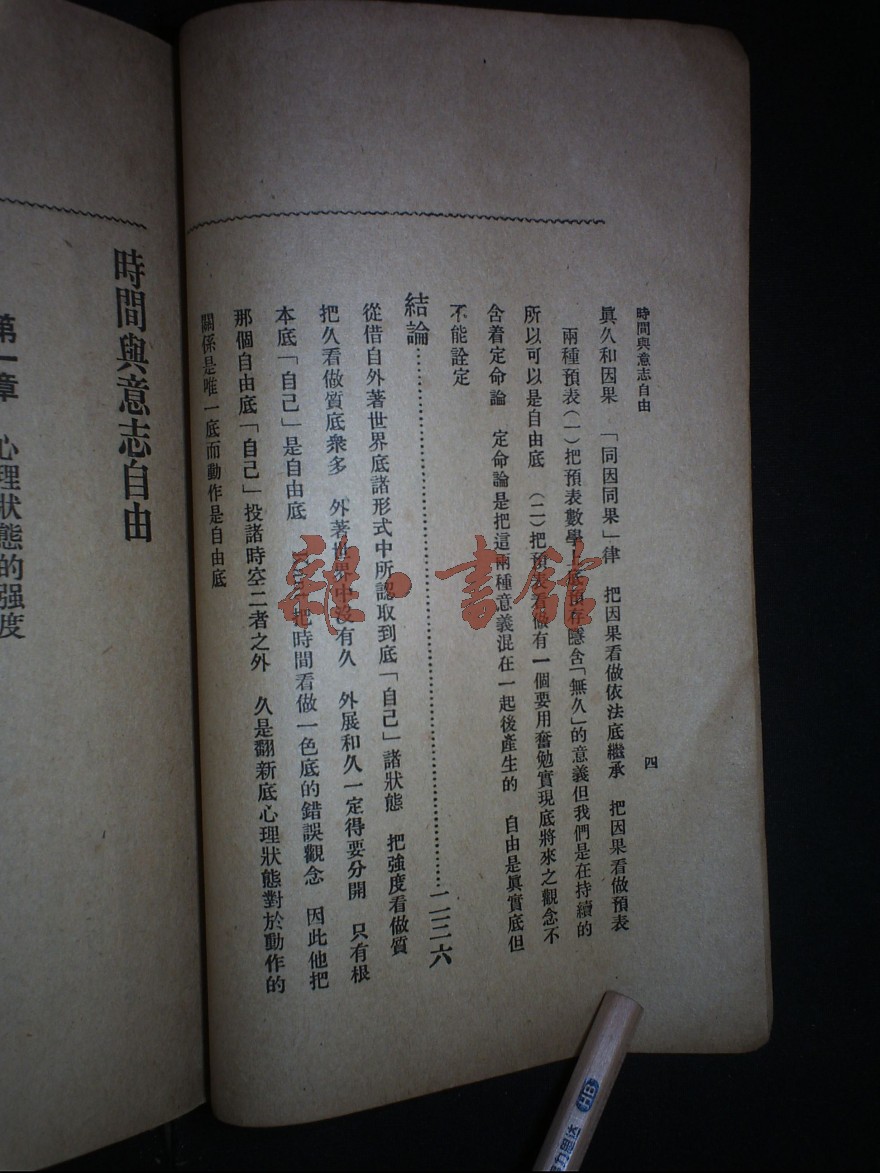 時間與意志自由
四
真久和因果　「同因同果」律　把因果看做依法底繼承　把因果看做預表
兩種預表（一）把預表數學上底預存隱含「無久」的意義但我們是在持續的
所以可以是自由底　（二）把預表看做有一個要用奮勉實現底將來之觀念不
含着定命論　定命論是把這兩種意義混在一起後產生的　自由是眞實底但
不能詮定
結論……二三六
從借自外著世界底諸形式中所認取到底「自己」諸狀態　把強度看做質
把久看做質底衆多　外著世界中沒有久　外展和久一定得要分開　只有根
本底「自己」是自由底　把時間看做一色底的錯誤觀念　因此他把
那個自由底「自己」投諸時空二者之外　久是翻新底心理狀態對於動作的
關係是唯一底而動作是自由底
時間與意志自由
第一章　心理狀態的强度
雜·書館
HB